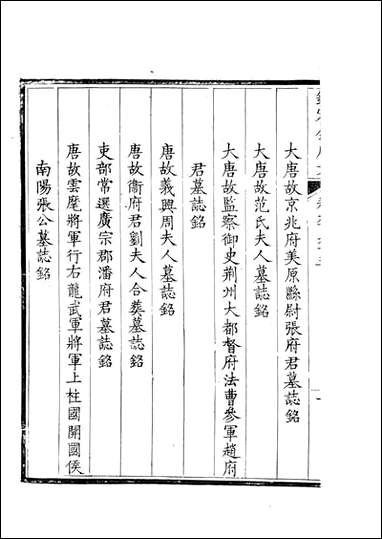 大唐故京兆府美原縣尉張府君墓誌銘
大唐故范氏夫人墓誌銘
大唐故監察御史荆州大都督府法曹參軍趙府
君墓誌銘
唐故義興周夫人墓誌銘
唐故衞府君劉夫人合葬墓誌銘
吏部常選廣宗郡潘府君墓誌銘
唐故雲麾將軍行右龍武軍將軍上柱國開國侯
南陽張公墓誌銘